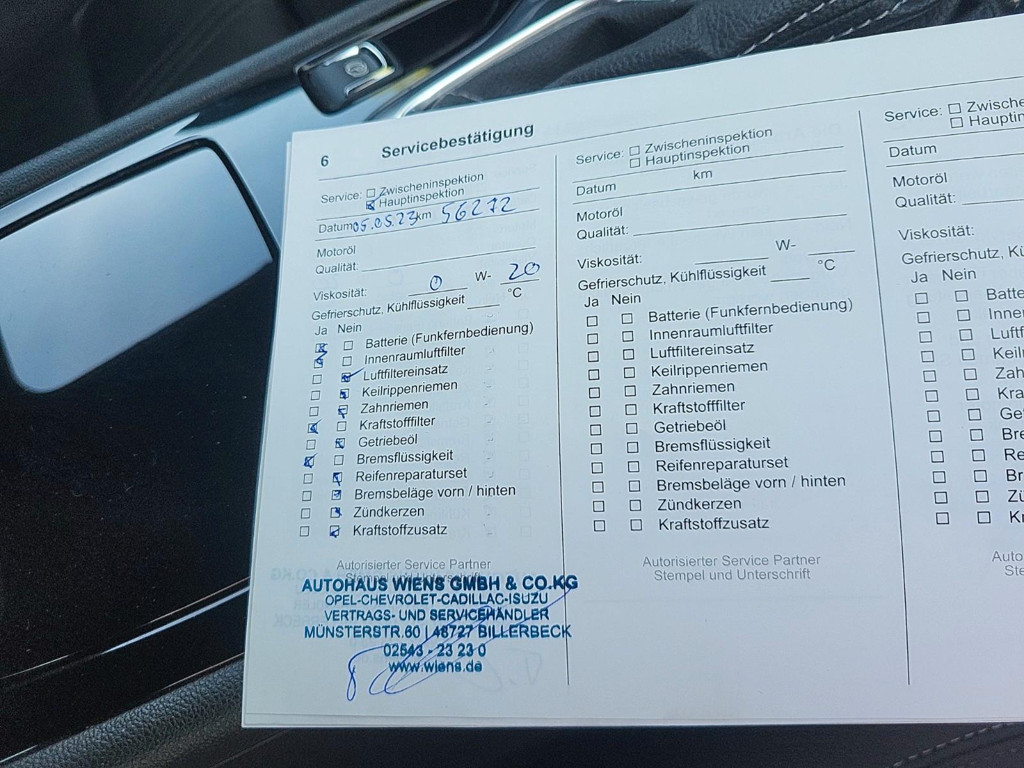 6 Servicebestätigung
Service: ☐ Zwischeninspektion
☒ Hauptinspektion
Datum 05.05.23 km 56272
Motoröl
Qualität:
Viskosität: 0 W- 20
Gefrierschutz, Kühlflüssigkeit °C
Ja Nein
☒ ☐ Batterie (Funkfernbedienung)
☒ ☐ Innenraumluftfilter
☐ ☒ Luftfiltereinsatz
☐ ☒ Keilrippenriemen
☐ ☒ Zahnriemen
☒ ☐ Kraftstofffilter
☐ ☒ Getriebeöl
☒ ☐ Bremsflüssigkeit
☐ ☒ Reifenreparaturset
☐ ☒ Bremsbeläge vorn / hinten
☐ ☒ Zündkerzen
☐ ☒ Kraftstoffzusatz
Autorisierter Service Partner
Stempel und Unterschrift
AUTOHAUS WIENS GMBH & CO.KG
OPEL-CHEVROLET-CADILLAC-ISUZU
VERTRAGS- UND SERVICEHÄNDLER
MÜNSTERSTR.60 | 48727 BILLERBECK
02543 - 23 23 0
www.wiens.de
Service: ☐ Zwischeninspektion
☐ Hauptinspektion
Datum km
Motoröl
Qualität:
Viskosität: W-
Gefrierschutz, Kühlflüssigkeit °C
Ja Nein
☐ ☐ Batterie (Funkfernbedienung)
☐ ☐ Innenraumluftfilter
☐ ☐ Luftfiltereinsatz
☐ ☐ Keilrippenriemen
☐ ☐ Zahnriemen
☐ ☐ Kraftstofffilter
☐ ☐ Getriebeöl
☐ ☐ Bremsflüssigkeit
☐ ☐ Reifenreparaturset
☐ ☐ Bremsbeläge vorn / hinten
☐ ☐ Zündkerzen
☐ ☐ Kraftstoffzusatz
Autorisierter Service Partner
Stempel und Unterschrift
Service: ☐ Zwische
☐ Hauptin
Datum
Motoröl
Qualität:
Viskosität:
Gefrierschutz, Kü
Ja Nein
☐ ☐ Batte
☐ ☐ Inne
☐ ☐ Luft
☐ ☐ Keil
☐ ☐ Zah
☐ ☐ Kra
☐ ☐ Get
☐ ☐ Bre
☐ ☐ Re
☐ ☐ Br
☐ ☐ Zü
☐ ☐ Kr
Auto
St